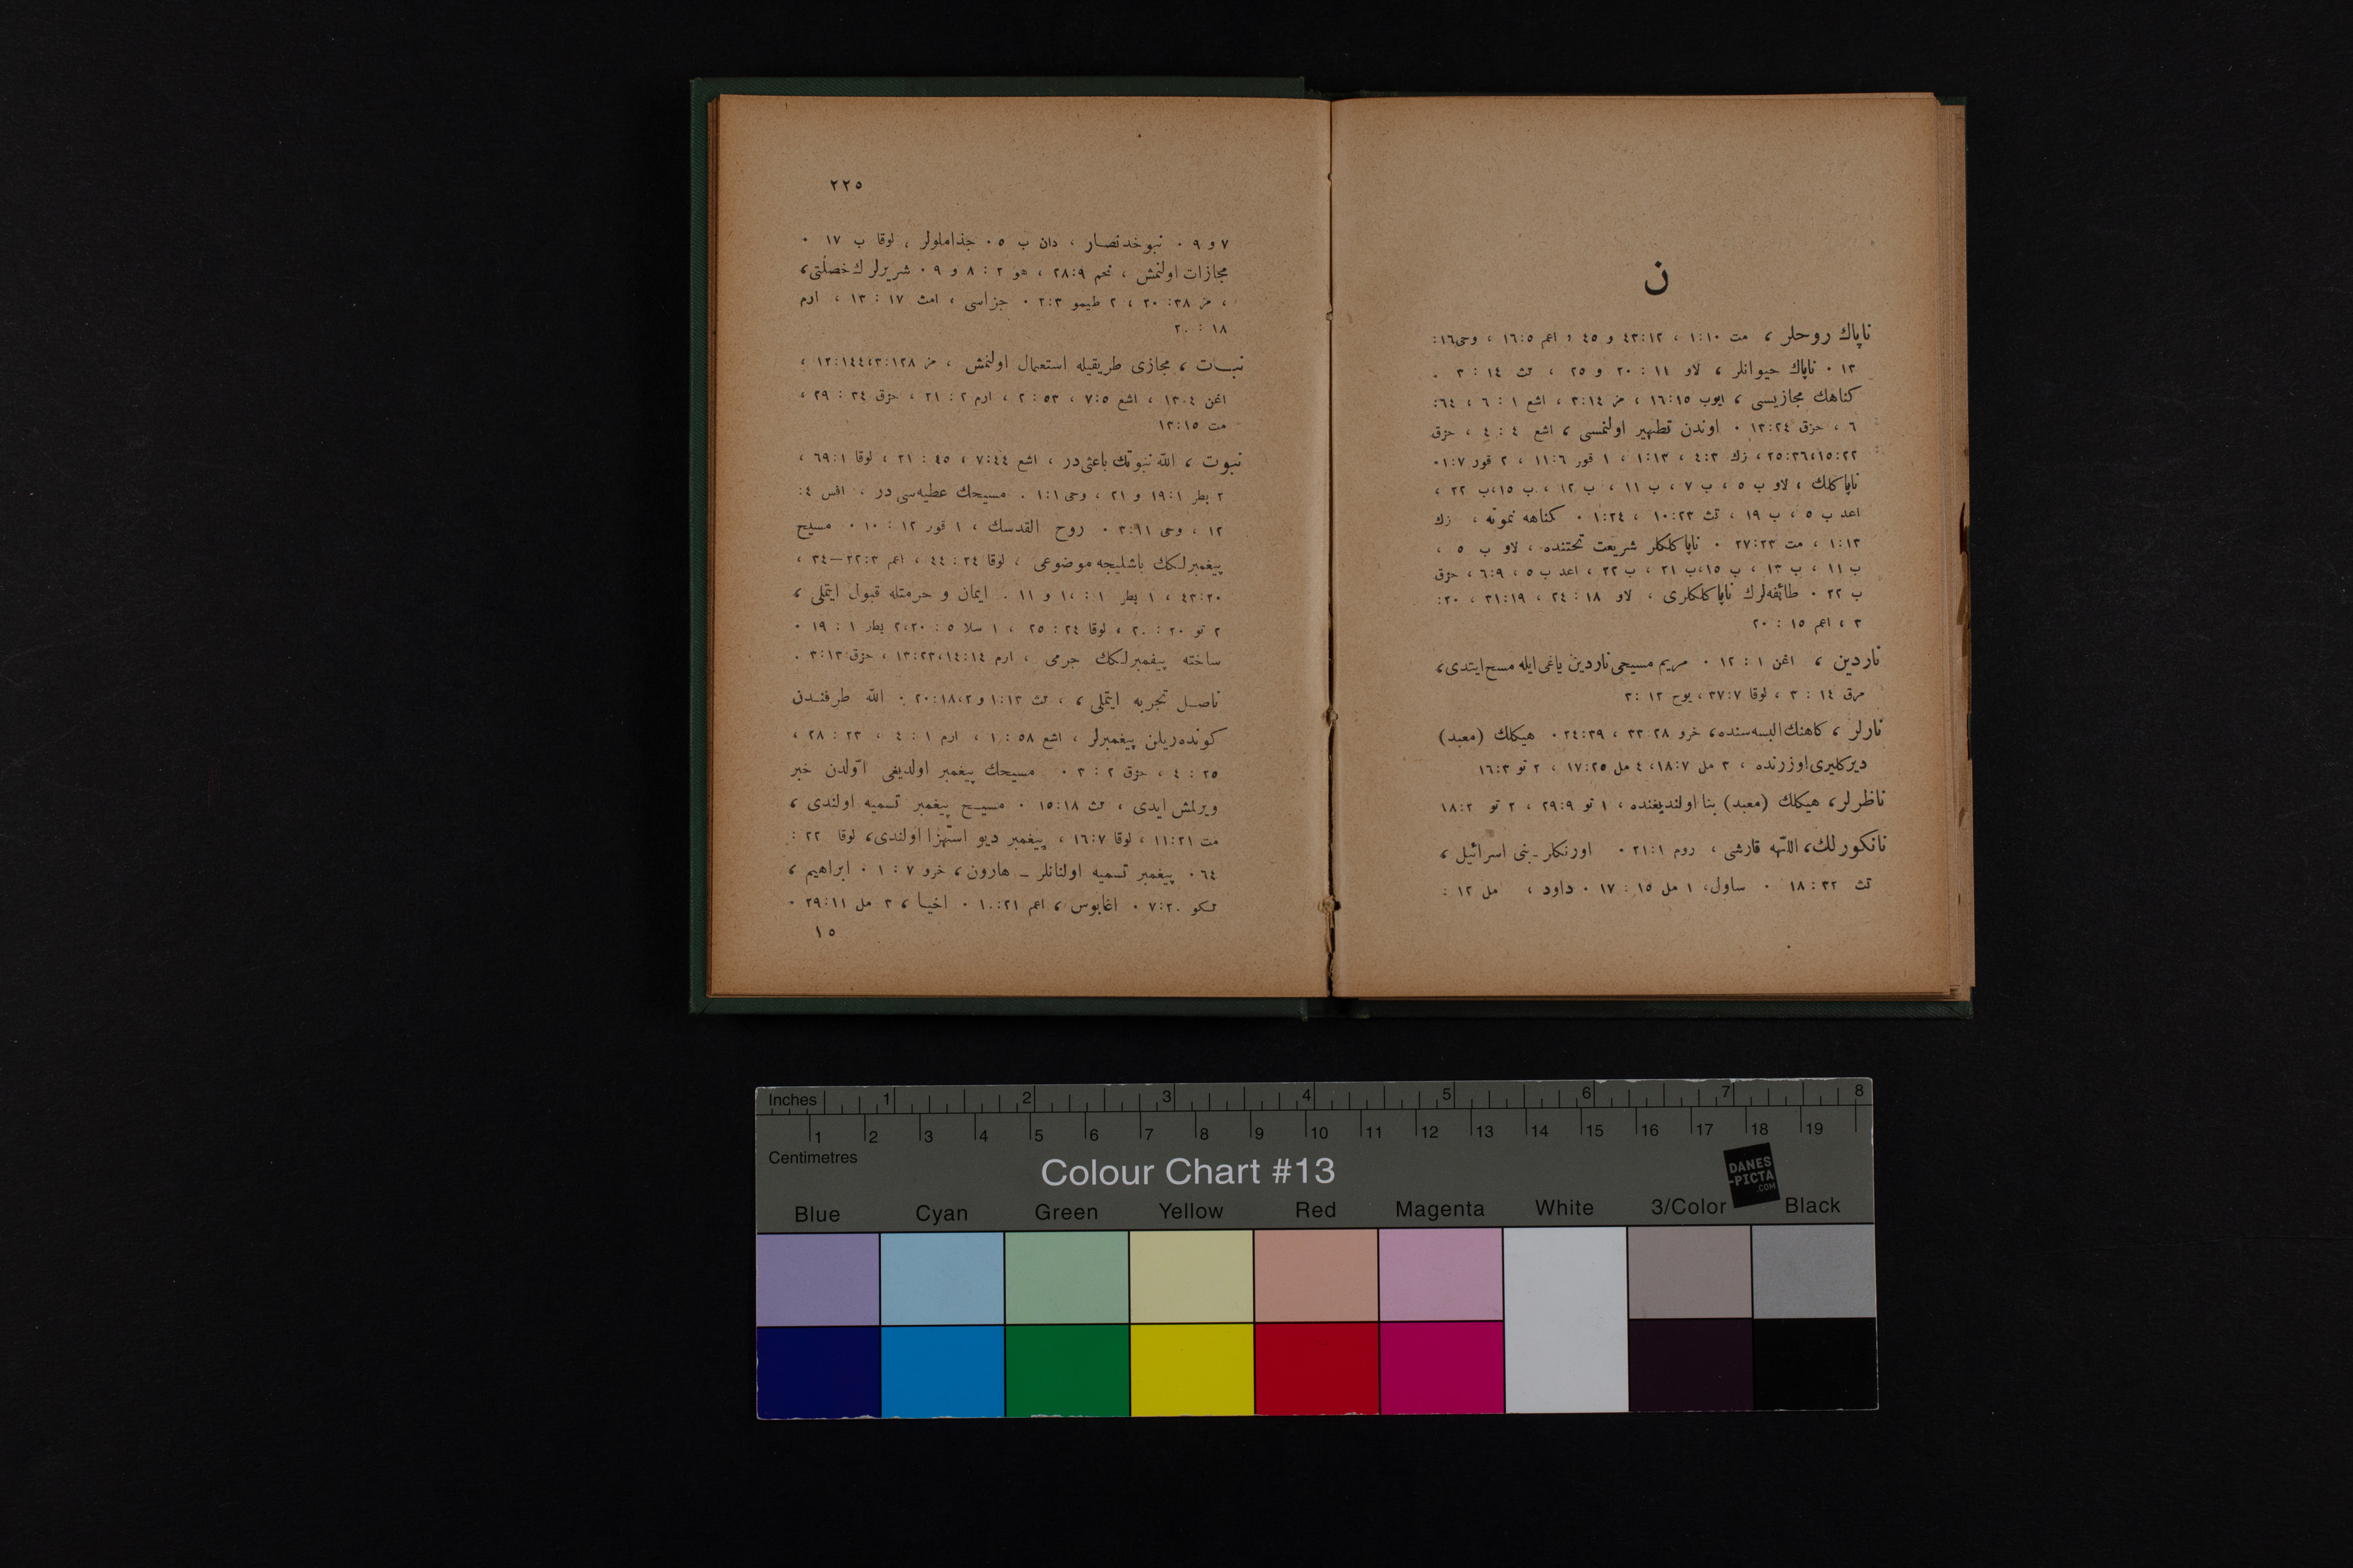 ن
ناپاك روحلر ، مت ١٠:١ ، ٤٣:١٢ و ٤٥ ، اعم ١٦:٥ ، وحی١٦:
١٣ ٠ ناپاك حيوانلر ، لاو ١١ : ٢٠ و ٢٥ ، تث ١٤ : ٣ ٠
كناهك مجازيسی ، ايوب ١٦:١٥ ، مز ٣:١٤ ، اشع ١ : ٦ ، ٦٤:
٦ ، حزق ١٣:٢٤ ٠ اوندن تطهير اولنمسی ، اشع ٤ : ٤ ، حزق
٢٥:٣٦،١٥:٢٢ ، زك ٤:٣ ، ١:١٣ ، ١ قور ١١:٦ ، ٢ قور ١:٧٠
ناپاكلك ، لاو ب ٥ ، ب ٧ ، ب ١١ ، ب ١٢ ، ب ١٥،ب ٢٢ ،
اعد ب ٥ ، ب ١٩ ، تث ١٠:٢٣ ، ١:٢٤ ٠ كناهه نمونه ، زك
١:١٣ ، مت ٢٧:٢٣ ٠ ناپاكلكلر شريعت تحتنده ، لاو ب ٥ ،
ب ١١ ، ب ١٣ ، ب ١٥،ب ٢١ ، ب ٢٢ ، اعد ب ٥ ، ٦:٩ ، حزق
ب ٢٢ ٠ طائفه‌لرك ناپاكلكلری ، لاو ١٨ : ٢٤ ، ٣١:١٩ ، ٢٠:
٣ ، اعم ١٥ : ٢٠
ناردين ، اغن ١ : ١٢ ٠ مريم مسيحی ناردين ياغی ايله مسح ايتدی،
مرق ١٤ : ٣ ، لوقا ٣٧:٧ ، يوح ١٢ :٣
نارلر ، كاهنك البسه سنده، خرو ٢٨ :٣٣ ، ٢٤:٣٩ ٠ هيكلك (معبد)
ديركلری اوزرنده ، ٣ مل ١٨:٧، ٤ مل ١٧:٢٥ ، ٢ تو ١٦:٣
ناظرلر، هيكلك (معبد) بنا اولنديغنده ، ١ تو ٢٩:٩ ، ٢ تو ١٨:٢
نانكورلك، اللّٰهه قارشی ، روم ٢١:١ ٠ اورنكلر ــ بنی اسرائيل ،
تث ٣٢ : ١٨ ٠ ساول، ١ مل ١٥ : ١٧ ٠ داود ، مل ١٢ :
٢٢٥
٧ و ٩ ٠ نبوخدنصار ، دان ب ٥ ٠ جذاملولر ، لوقا ب ١٧ ٠
مجازات اولنمش ، نحم ٢٨:٩ ، هو ٢ : ٨ و ٩ ٠ شريرلرك خصلتی،
، مز ٣٨: ٢٠ ، ٢ طيمو ٢:٣ ٠ جزاسی ، امث ١٧ : ١٣ ، ارم
١٨ : ٢٠
نبات ، مجازی طريقيله استعمال اولنمش ، مز ١٢:١٤٤،٣:١٢٨ ،
اغن ١٣:٤ ، اشع ٧:٥ ، ٥٣ : ٢ ، ارم ٢ : ٢١ ، حزق ٣٤ : ٢٩ ،
مت ١٣:١٥
نبوت ، اللّٰه نبوتك باعثی در ، اشع ٧:٤٤ ، ٤٥ : ٢١ ، لوقا ٦٩:١ ،
٢ بطر ١٩:١ و ٢١ ، وحی ١:١ ٠ مسيحك عطيه سی در ، افس ٤:
١٢ ، وحی ٣:١١ ٠ روح القدسك ، ١ قور ١٢ : ١٠ ٠ مسيح
پيغمبرلكك باشليجه موضوعی ، لوقا ٢٤ : ٤٤ ، اعم ٢٢:٣—٢٤ ،
٤٣:٢٠ ، ١ بطر ١ : ١٠ و ١١ ٠ ايمان و حرمتله قبول ايتملی ،
٢ تو ٢٠ : ٢٠ ، لوقا ٢٤ : ٢٥ ، ١ سلا ٥ : ٢،٢٠ بطر ١ : ١٩ ٠
ساخته پيغمبرلكك جرمی ، ارم ١٣:٢٣،١٤:١٤ ، حزق ٣:١٣ ٠
ناصل تجربه ايتملی ، ، تث ١:١٣ و ٢٠:١٨،٢ ٠ اللّٰه طرفندن
كونده‌ريلن پيغمبرلر ، اشع ٥٨ : ١ ، ارم ١ : ٤ ، ٢٣ : ٢٨ ،
٢٥ : ٤ ، حزق ٢ : ٣ ٠ مسيحك پيغمبر اولديغی اوّلدن خبر
ويرلمش ايدی ، تث ١٥:١٨ ٠ مسيح پيغمبر تسميه اولندی ،
مت ١١:٢١ ، لوقا ١٦:٧ ، پيغمبر ديو استهزا اولندی، لوقا ٢٢ :
٦٤ ٠ پيغمبر تسميه اولنانلر ــ هارون، خرو ٧ : ١ ٠ ابراهيم ،
تكو ٧:٢٠ ٠ اغابوس ، اعم ١٠:٢١ ٠ اخيا ، ٣ مل ٢٩:١١ ٠
١٥
Inches 1 2 3 4 5 6 7 8
1 2 3 4 5 6 7 8 9 10 11 12 13 14 15 16 17 18 19
Centimetres
Colour Chart #13
DANES
-PICTA
.COM
Blue Cyan Green Yellow Red Magenta White 3/Color Black